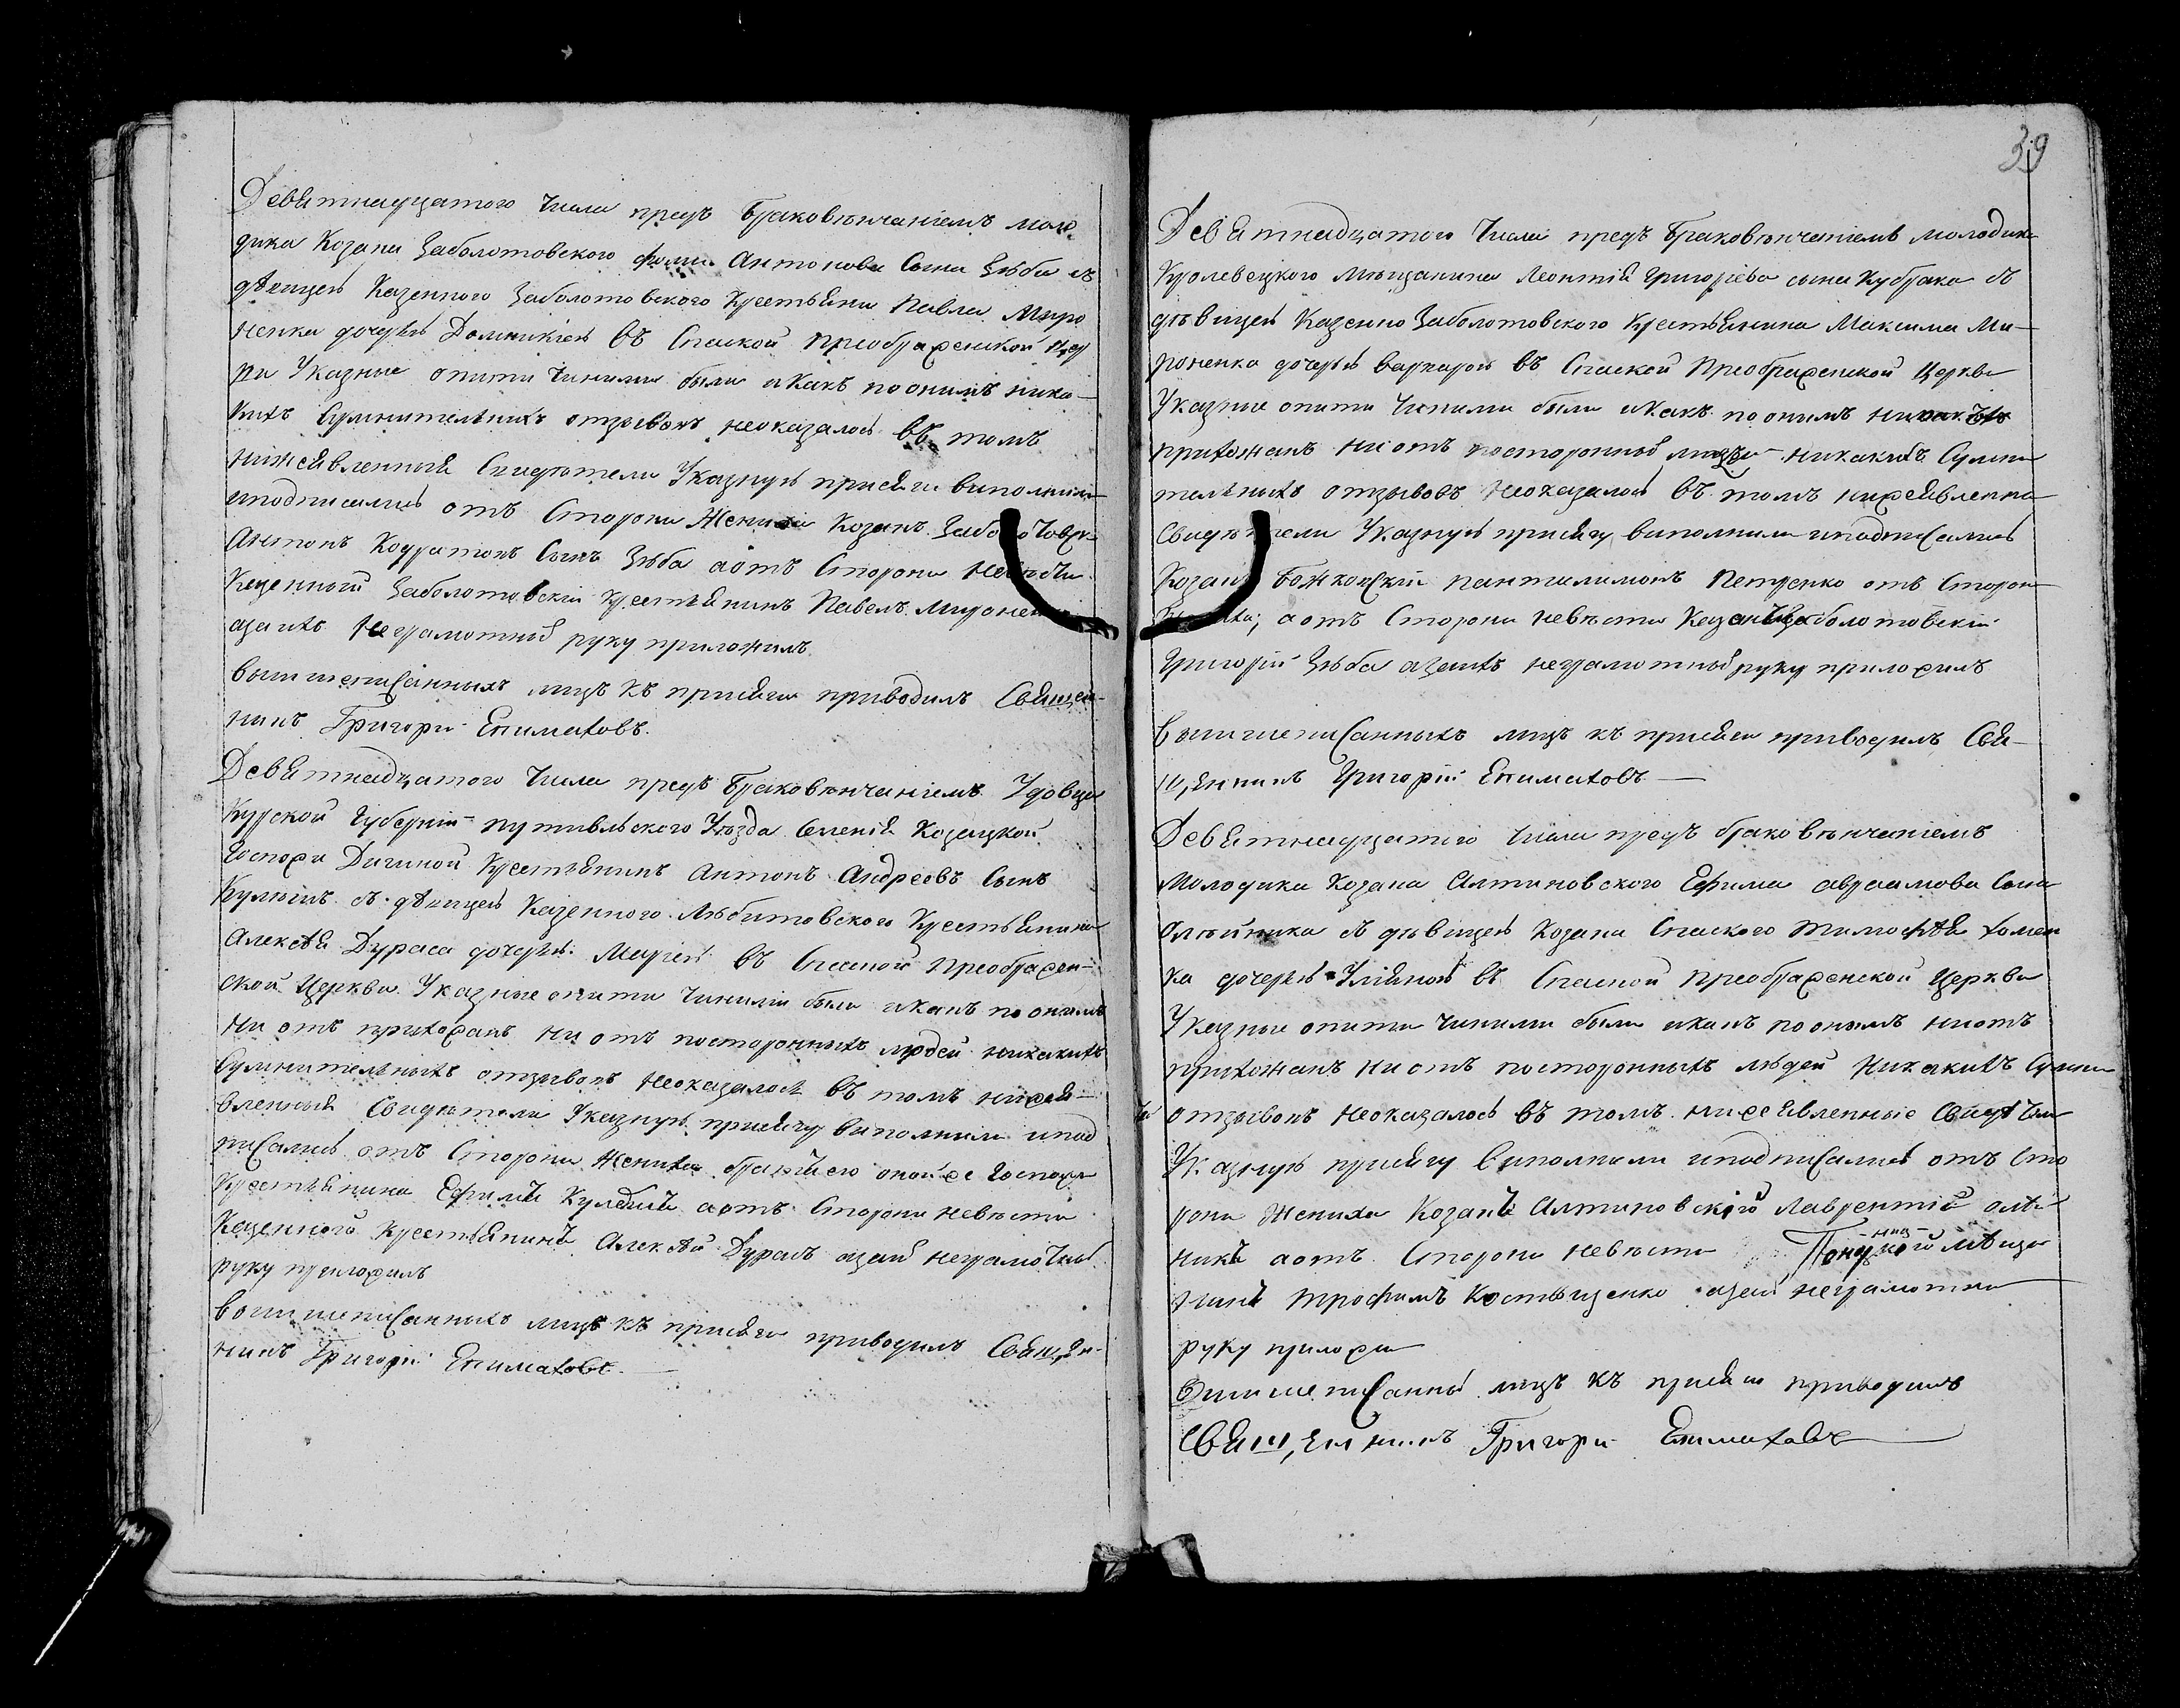 Девятнадцатого Числа предъ Браковѣнчаніемъ моло
дика Козака Заболотовского фоми Антонова Сына Зѣба съ
дѣвицей Казенного Заболотовского Крестьяни Павла Миро
ненка дочерью Домникіею въ Спаской Преображенской Цер
кви Указные опити Чиними были икакъ поонимъ ника
кихъ Сумнительнихъ отзывовъ неоказалось въ томъ
нижеявленный Свидѣтели Указную присягу виполнили
иподписались отъ Стороны Жениха Козакъ
Антонъ Кодратовъ Сынъ Зѣба аотъ Стороны невѣсты
Казенный Заболотовскій Крестьянинъ Павелъ Мироненко
азаихъ Неграмотный руку приложилъ
вышшеписанныхъ лицъ къ присяги приводилъ Священ-
никъ Григори Епимаховъ.
Девятнадцатого Числа предъ Браковѣнчаніемъ Удовца
Курской Губерніи путивльского Уѣзда Селенія Козацкой
Госпожи Дичиной Крестьянинъ Антонъ Андреевъ Сынъ
съ дѣвицей Казенного Любитовского Крестьянина
Алексѣя Дураса дочерью Маріею въ Спаской Преображен-
ской Церкви Указные опити Чиними были икакъ поонимъ
Ни отъ прихожанъ Ни отъ посторонныхъ людей никакихъ
Сумнительныхъ отзывовъ Неоказалось въ томъ нижеяв-
вленный Свидѣтели Указную присягу виполнили ипод
писались отъ Стороны Жениха оной же Госпожи
Крестьянина Ефимъ аотъ Стороны невѣсты
Казенного Крестьянинъ Алексѣй Дурасъ азаи неграмотны
руку приложилъ
вышшеписанныхъ лицъ къ присяги приводилъ Священ-
никъ Григорій Епимаховъ.
39
Девятнадцатого Числа предъ Браковѣнчаніемъ молодика
Кролевецкого мѣщанина Леонтія Григоріева сына Кубрака съ
дѣвицей Казенно Заболотовского Крестьянина Максима Ми-
роненка дочерью варварою въ Спаской Преображенской Церкви
Указние опити Чиними были икакъ поонимъ
прихожанъ ни отъ посторонный никакихъ Сумни
тельнихъ отзывовъ Неоказалось въ томъ нижеявленна
Свидѣтели Указную присягу виполнили иподписались
Козакъ Божковскій пантилимонъ Петренко отъ Сторон
Жениха; аотъ Стороны невѣсты Казаниза болотовскій
Григорій Зѣба азаихъ неграмотный руку приложилъ
Вышшеписанныхъ лицъ къ присяги приводилъ Свя-
щенникъ Григорій Епимаховъ
Девятнадцатого Числа предъ браковѣнчаніемъ
Молодика Козака Алтиновского Ефима авраамова Сына
Олѣйника съ дѣвицей Козака Спаского Тимофѣя хомен
ка дочерью Уліяною въ Спаской Преображенской Церкви
Указные опити Чиними были икакъ поонымъ ниотъ
прихожанъ ни отъ посторонныхъ людей Никакихъ Сумни
отзывовъ Неоказалось въ томъ нижеявленные Свидѣтели
Указную присягу виполнили иподписались отъ Сто
роны Жениха Козакъ Алтиновскій Лаврентій олѣй
никъ аотъ Стороны невѣсты мѣща
нинъ Трофимъ Костюченко азаи неграмотны
руку приложи
Вишшеписанны лицъ къ присяги приводилъ
Священникъ Григори Епимаховъ